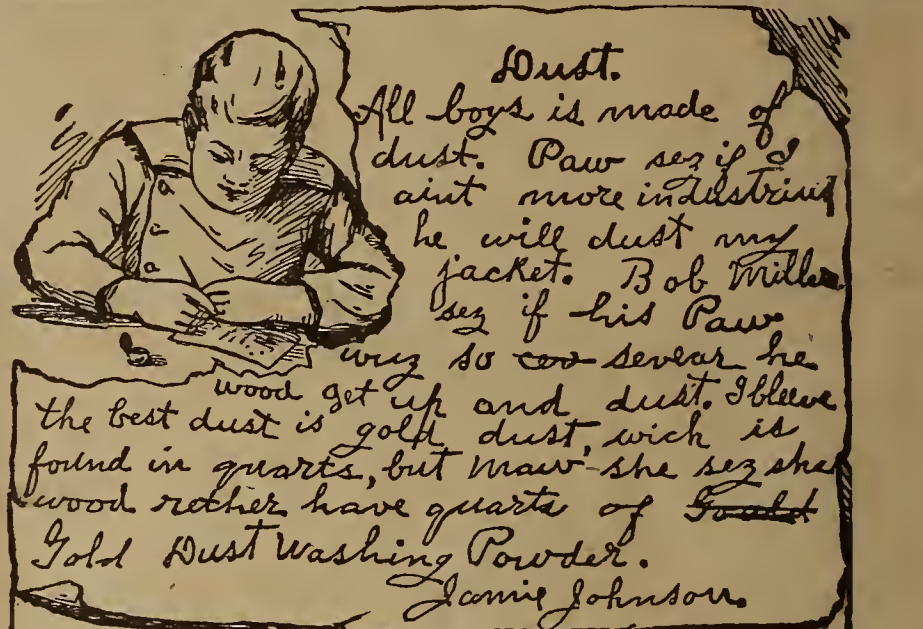 Dust.
All boys is made of
dust. Paw sez if I
aint more industrius
he will dust my
jacket. Bob Miller
sez if his Paw
wuz so sevear he
wood get up and dust. I bleeve
the best dust is gold dust, wich is
found in quarts, but Maw she sez she
wood rether have quarts of Gould
Gold Dust Washing Powder.
Jamie Johnson.